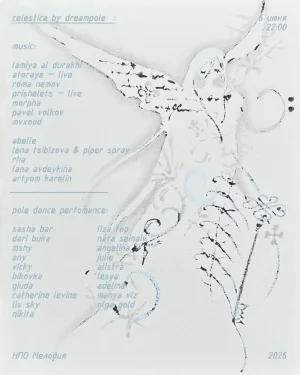 celestica by dreampole :
6 июня
22:00
music:
lamiya al durakhi
aforaye — live
roma nemov
prishelets — live
morpha
pavel volkov
mvxnod
abelle
lena tsibizova & piper spray
rha
lana avdeykina
artyom karelin
pole dance perfomance:
sasha bar
dari buka
mshy
any
vicky
bikovka
giuda
catherine levine
lis sky
nikita
liza top
nata
angelina
julie
allstra
lesya
adelina
manya viz
olga gold
НПО Мелофия
2026